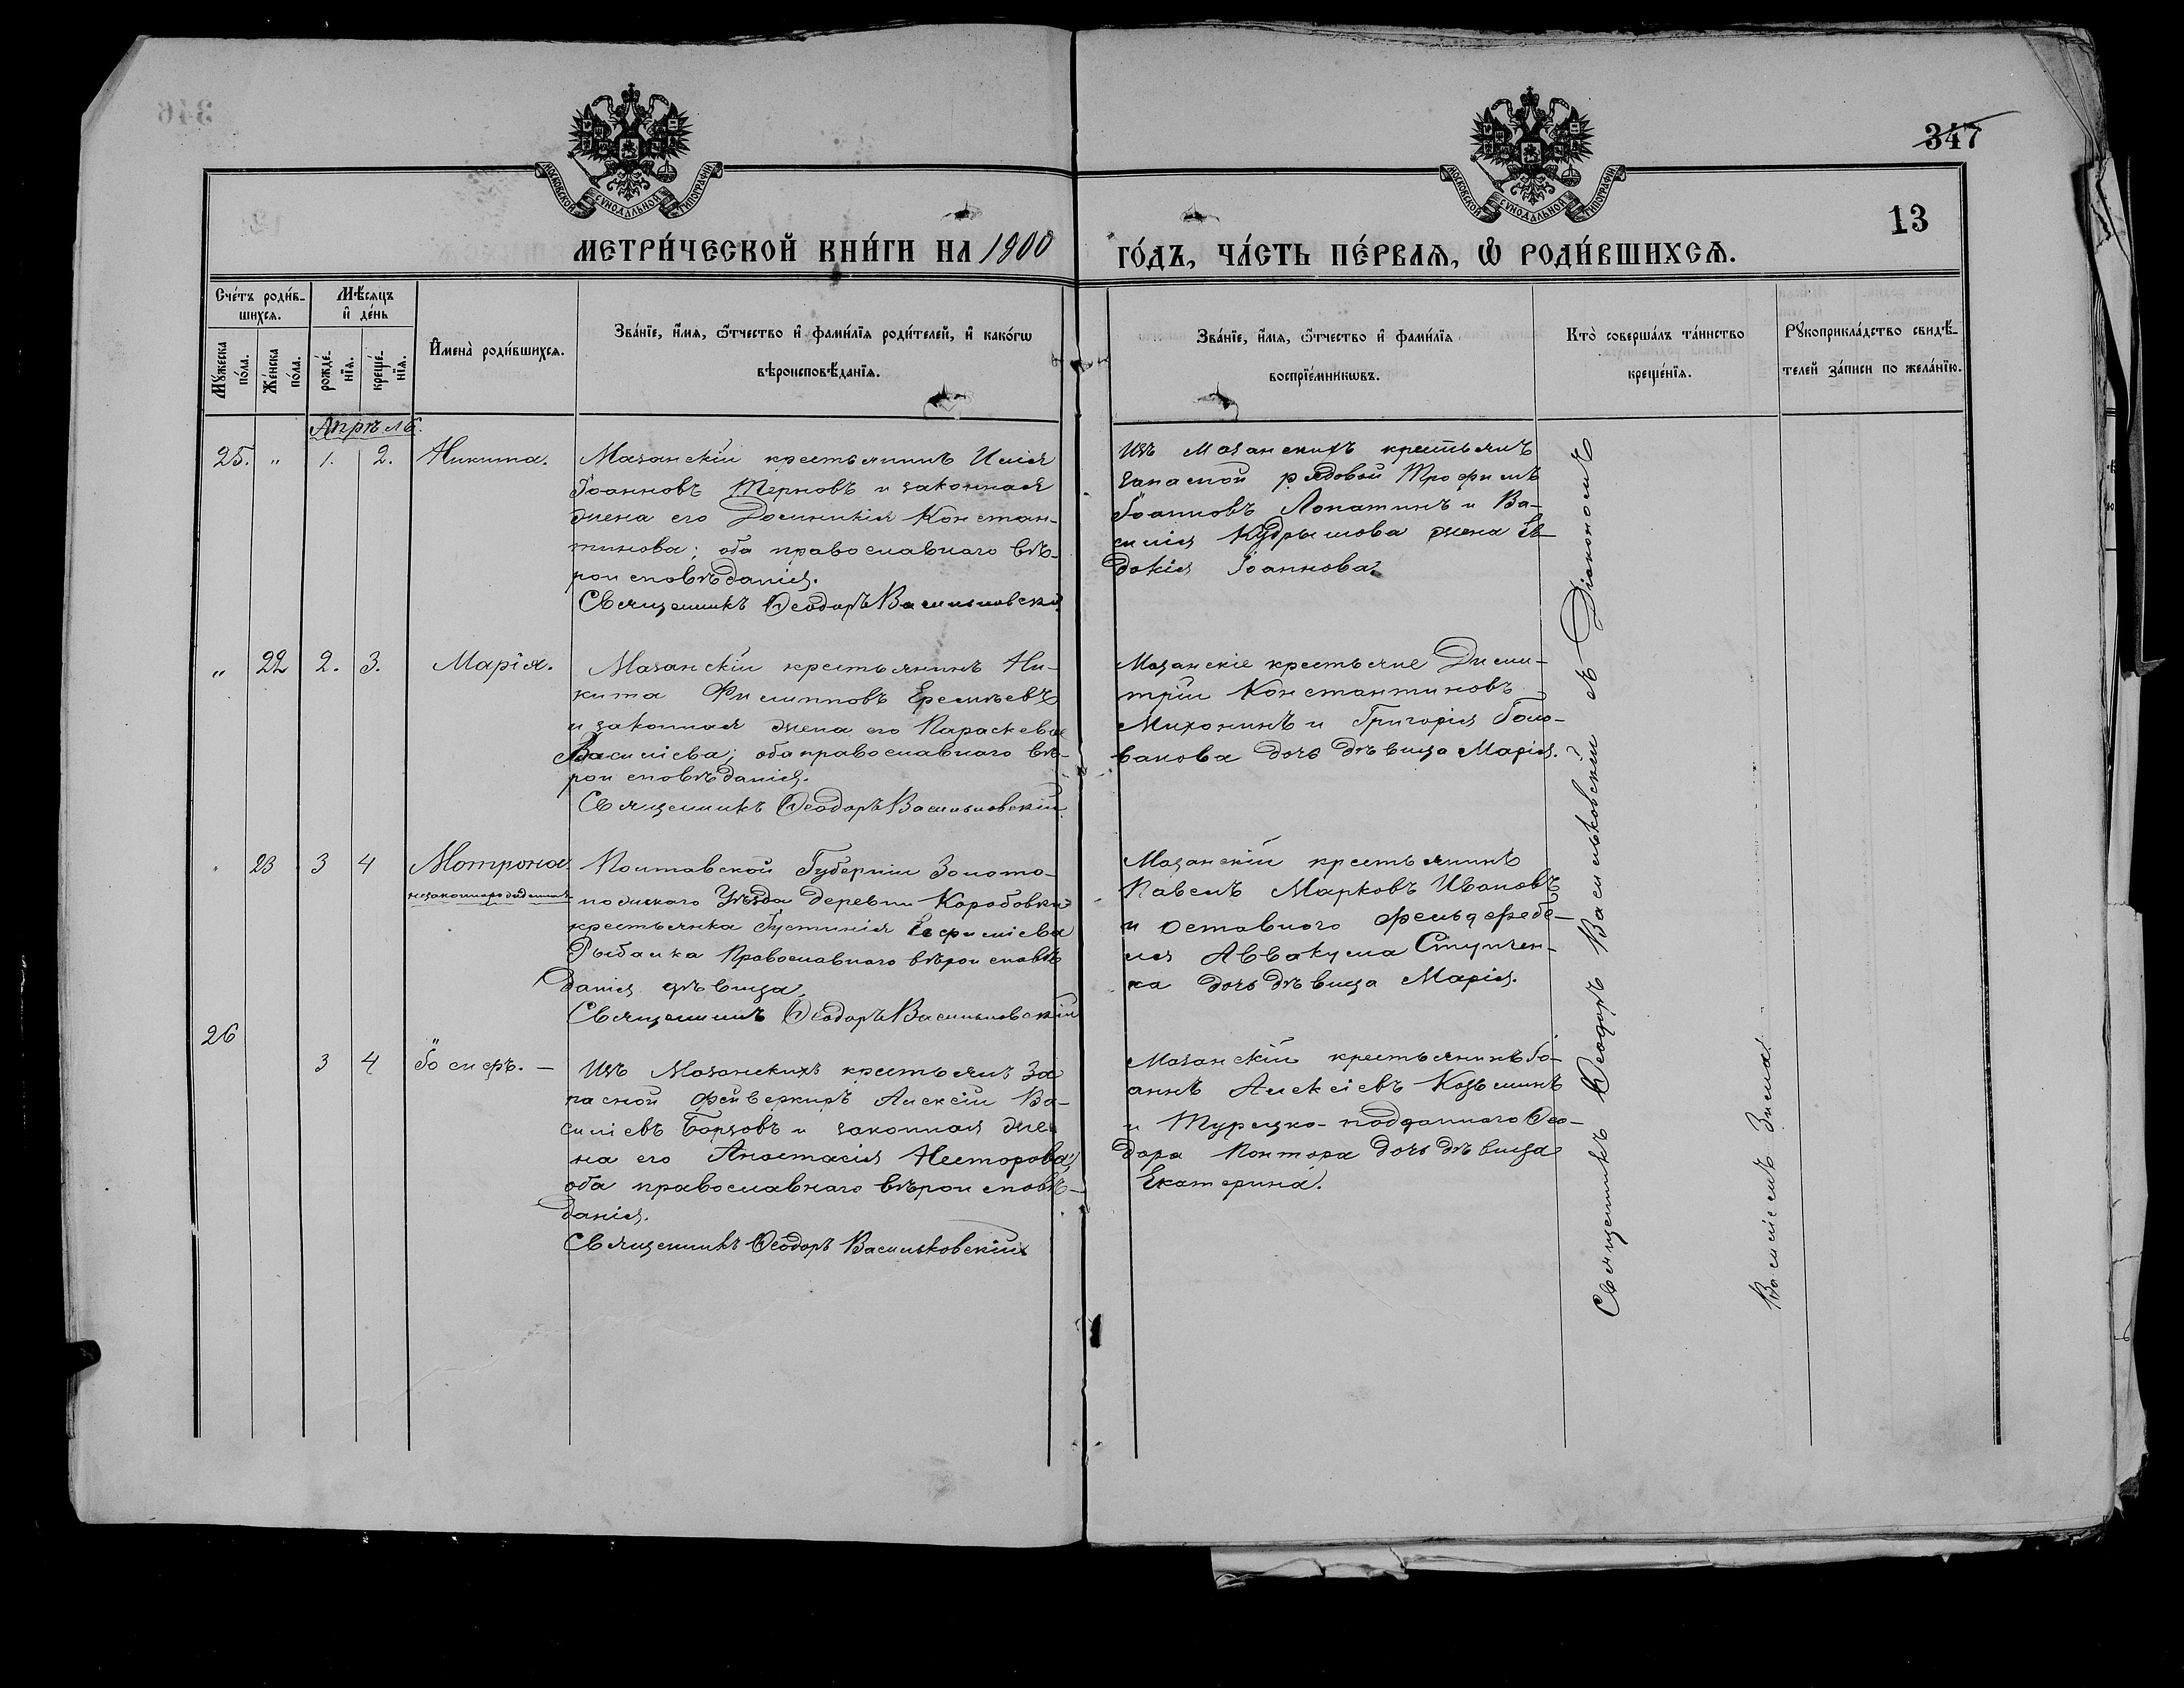 346
347
13
МОСКОВСКОЙ СѴНОДАЛЬНОЙ ТИПОГРАФІИ
МОСКОВСКОЙ СѴНОДАЛЬНОЙ ТИПОГРАФІИ
МЕТРИ́ЧЕСКОЙ КНИ́ГИ НА 1900 ГО́ДЪ, ЧА́СТЬ ПЕ́РВАѦ, Ѽ РОДИ́ВШИХСѦ.
Сче́тъ роди́в-
шихсѧ.
Мꙋ́жеска по́ла.
Же́нска по́ла.
Мѣ́сѧцъ
и҆ де́нь
рожде́-нїѧ.
креще́-нїѧ.
И҆мена̀ роди́вшихсѧ.
Зва́нїе, и҆́мѧ, ѻ҆́тчество и҆ фами́лїѧ роди́телей, и҆ како́гѡ
вѣроисповѣ́данїѧ.
Зва́нїе, и҆́мѧ, ѻ҆́тчество и҆ фами́лїѧ
воспрїе́мникѡвъ.
Кто̀ соверша́лъ та́инство
креще́нїѧ.
Рꙋкоприкла́дство свидѣ́-
телей за́писи по жела́нїю.
Апрѣль.
25. „ 1. 2. Никита.
Мазанскій крестьянинъ Илія
Іоанновъ Терновъ и законная
жена его Домникія Констан-
тинова; оба православнаго вѣ-
роисповѣданія.
Священникъ Ѳеодоръ Васильковскій
Изъ Мазанскихъ крестьянъ
запасной рядовой Трофимъ
Іоанновъ Лопатинъ и Ва-
силія Кудрымова жена Ев-
докія Іоаннова.
„ 22 2. 3. Марія.
Мазанскій крестьянинъ Ни-
кита Филипповъ Еремѣевъ
и законная жена его Параскева
Василіева; оба православнаго вѣ-
роисповѣданія.
Священникъ Ѳеодоръ Васильковскій.
Мазанскіе крестьяне Дими-
трій Константиновъ
Михонинъ и Григорія Голо-
ванова дочь дѣвица Марія.
23 3 4 Мотрона
незаконнорожденная
Полтавской Губерніи Золото-
ношскаго Уѣзда деревни Коробовки
крестьянка Іустинія Евфиміева
Рыбалка Православнаго вѣроисповѣ
данія дѣвица.
Священникъ Ѳеодоръ Васильковскій
Мазанскій крестьянинъ
Павелъ Марковъ Ивановъ
и отставного фельдфебе-
ля Аввакума Ступчен-
ка дочь дѣвица Марія.
26 „ 3 4 Іосифъ. —
Изъ Мазанскихъ крестьянъ За
пасной фейверкиръ Алексій Ва-
силіевъ Борзовъ и законная же-
на его Анастасія Несторова;
оба православнаго вѣроисповѣ-
данія.
Священникъ Ѳеодоръ Васильковскій
Мазанскій крестьянинъ Іо-
аннъ Алексіевъ Козьминъ
и Турецко-подданнаго Ѳео-
дора Контора дочь дѣвица
Екатерина.
Священникъ Ѳеодоръ Васильковскій съ Діакономъ
Василіемъ Зима.